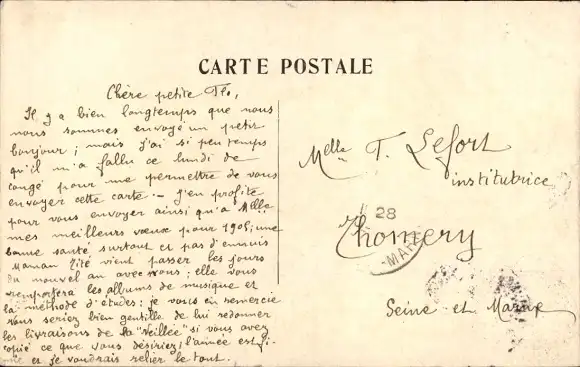 CARTE POSTALE
Chère petite Flo,
Il y a bien longtemps que nous
nous sommes envoyé un petit
bonjour ; mais j'ai si peu temps
qu'il m'a fallu ce lundi de
congé pour me permettre de vous
envoyer cette carte. - J'en profite
pour vous envoyer ainsi qu'à Melle
mes meilleurs vœux pour 1906 ; une
bonne santé surtout et pas d'ennuis
Maman Zité vient passer les jours
du nouvel an avec vous ; elle vous
remportera les albums de musique et
la méthode d'études ; je vous en remercie
vous seriez bien gentille de lui redonner
les livraisons de la "Veillée" si vous avez
copié ce que vous désiriez, l'année est fi-
nie et je voudrais relier le tout.
Melle T. Lefort
institutrice
28
Thomery
Seine et Marne